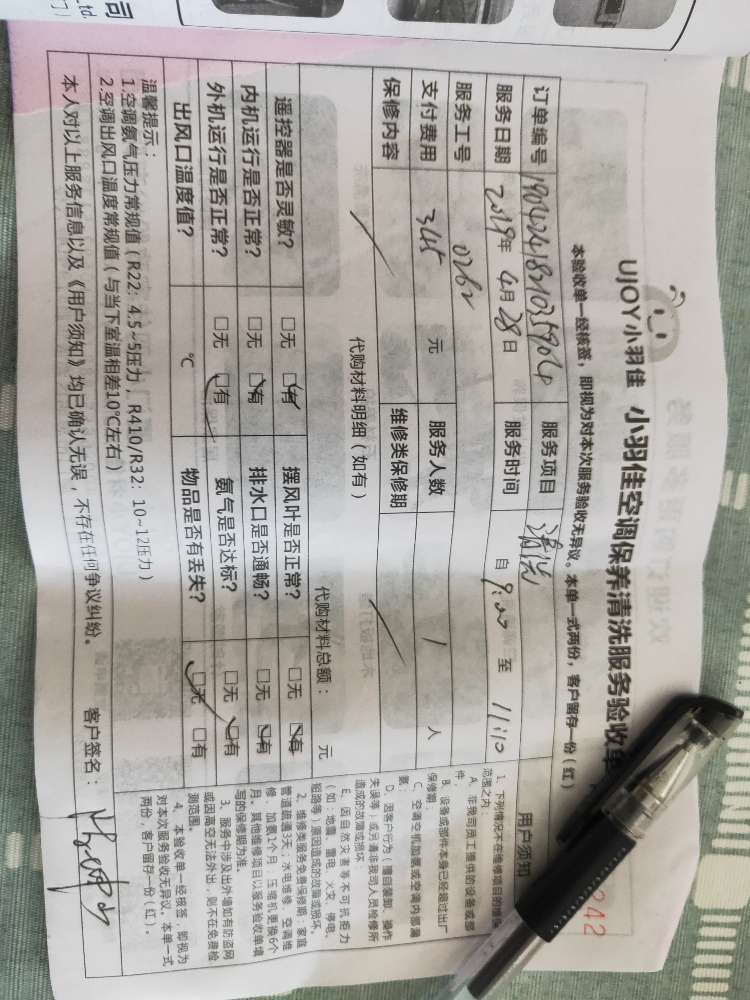 司
td.
242
UJOY小羽佳 小羽佳空调保养清洗服务验收单
本验收单一经核签，即视为对本次服务验收无异议。本单一式两份，客户留存一份（红）
订单编号 服务项目 清洗
服务日期 2019年 4月 28日 服务时间 自 9:00 至 11:10
服务工号 0262 服务人数 1 人
支付费用 345 元 维修类保修期
保修内容
代购材料明细（如有） 代购材料总额： 元
遥控器是否灵敏？ □无 □有 摆风叶是否正常？ □无 □有
内机运行是否正常？ □无 □有 排水口是否通畅？ □无 □有
外机运行是否正常？ □无 □有 氨气是否达标？ □无 □有
出风口温度值？ ℃ 物品是否有丢失？ □无 □有
温馨提示：
1.空调氨气压力常规值（R22：4.5~5压力，R410/R32：10~12压力）
2.空调出风口温度常规值（与当下室温相差10℃左右）
本人对以上服务信息以及《用户须知》均已确认无误，不存在任何争议纠纷。 客户签名：
用户须知
1、下列情况不在维修项目的维保
范围之内：
A、非我司员工提供的设备或部
件；
B、设备或部件本身已经超过出厂
保修期；
C、空调空机加氨或空调内部漏
氨；
D、因客户行为（擅自装卸、操作
失误等）或另请非我司人员检修所
造成的故障或损坏；
E、因自然灾害等不可抗拒力
（如：地震、雷电、火灾、停电、
短路等）原因造成的故障或损坏。
2、维修类服务免费保修期：家庭
管道疏通3天；水电维修、空调维
修、加氨1个月，压缩机更换6个
月。其他维修项目以服务验收单填
写的保修期为准。
3、服务中涉及出外墙如有防盗网
或因高空无法外出，则不在免费检
测范围。
4、本验收单一经核签，即视为
对本次服务验收无异议。本单一式
两份，客户留存一份（红）。